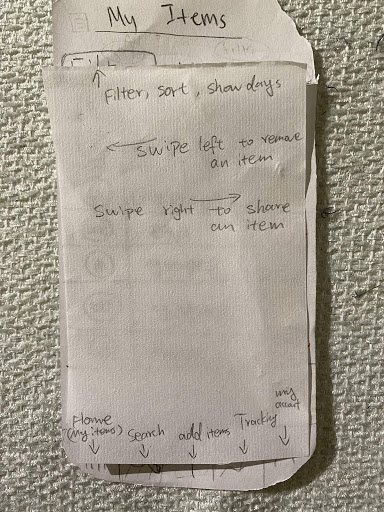 My Items
Filter, sort, show days
Swipe left to remove
an item
Swipe right to share
an item
Home
(My items)
Search
add items
Tracking
my